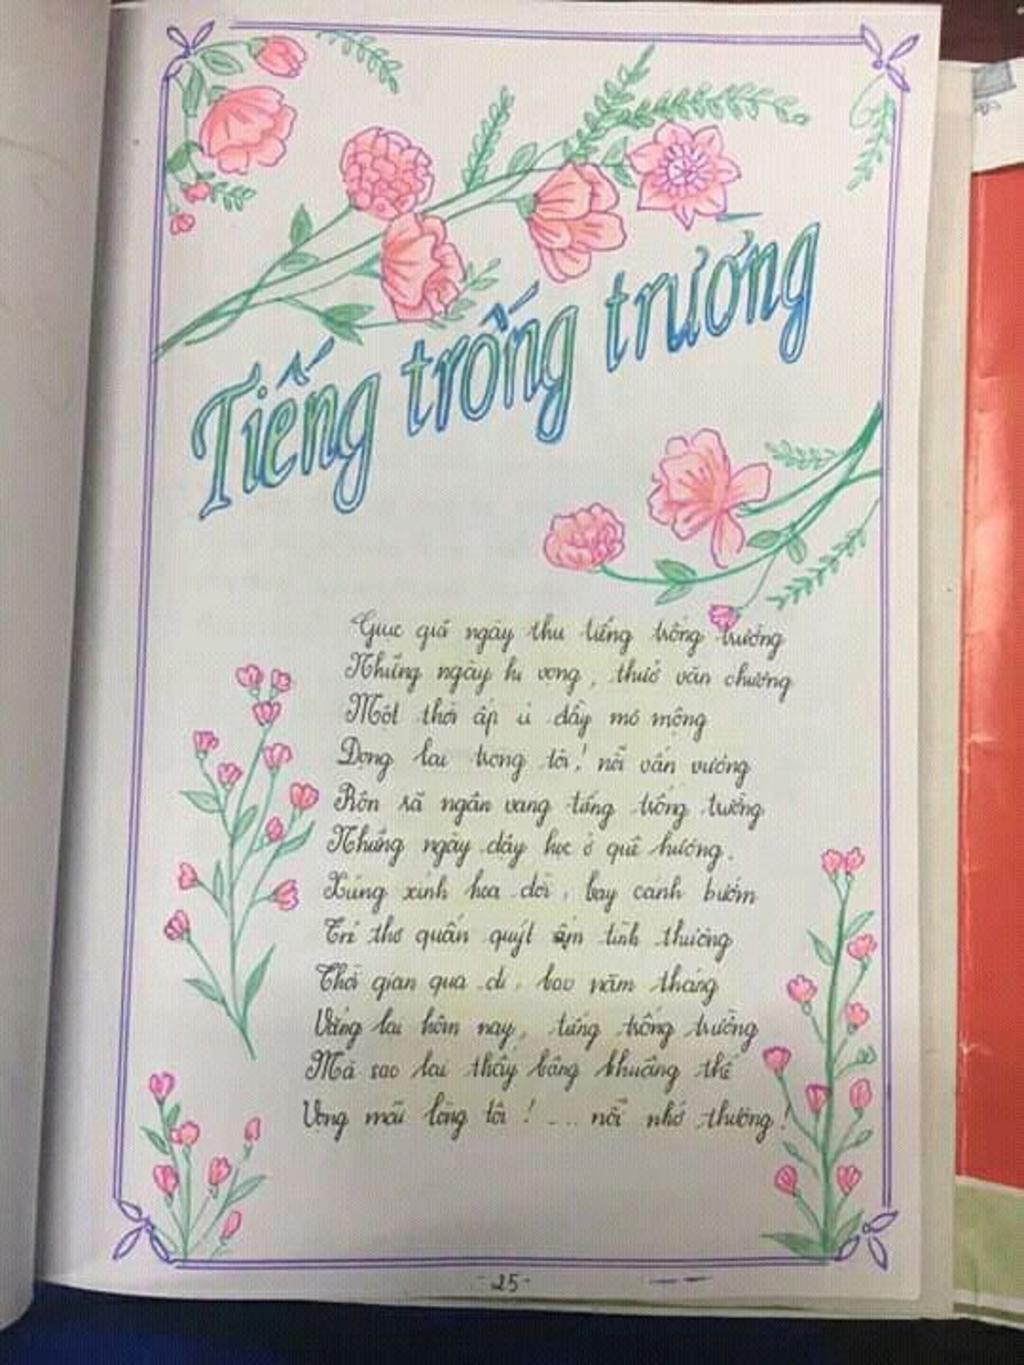 Tiếng trống trường
Giục giã ngày thu tiếng trống trường
Những ngày hi vọng, thuở văn chương
Một thời ấp ủ đầy mơ mộng
Đọng lại trong tôi! nỗi vấn vương
Rộn rã ngân vang tiếng trống trường
Những ngày dạy học ở quê hương.
Xúng xính hoa đời, bay cánh bướm
Trẻ thơ quấn quýt ấm tình thương
Thời gian qua đi, bao năm tháng
Vẳng lại hôm nay, tiếng trống trường
Mà sao lại thấy bâng khuâng thế
Vọng mãi lòng tôi! ... nỗi nhớ thương!
-25-